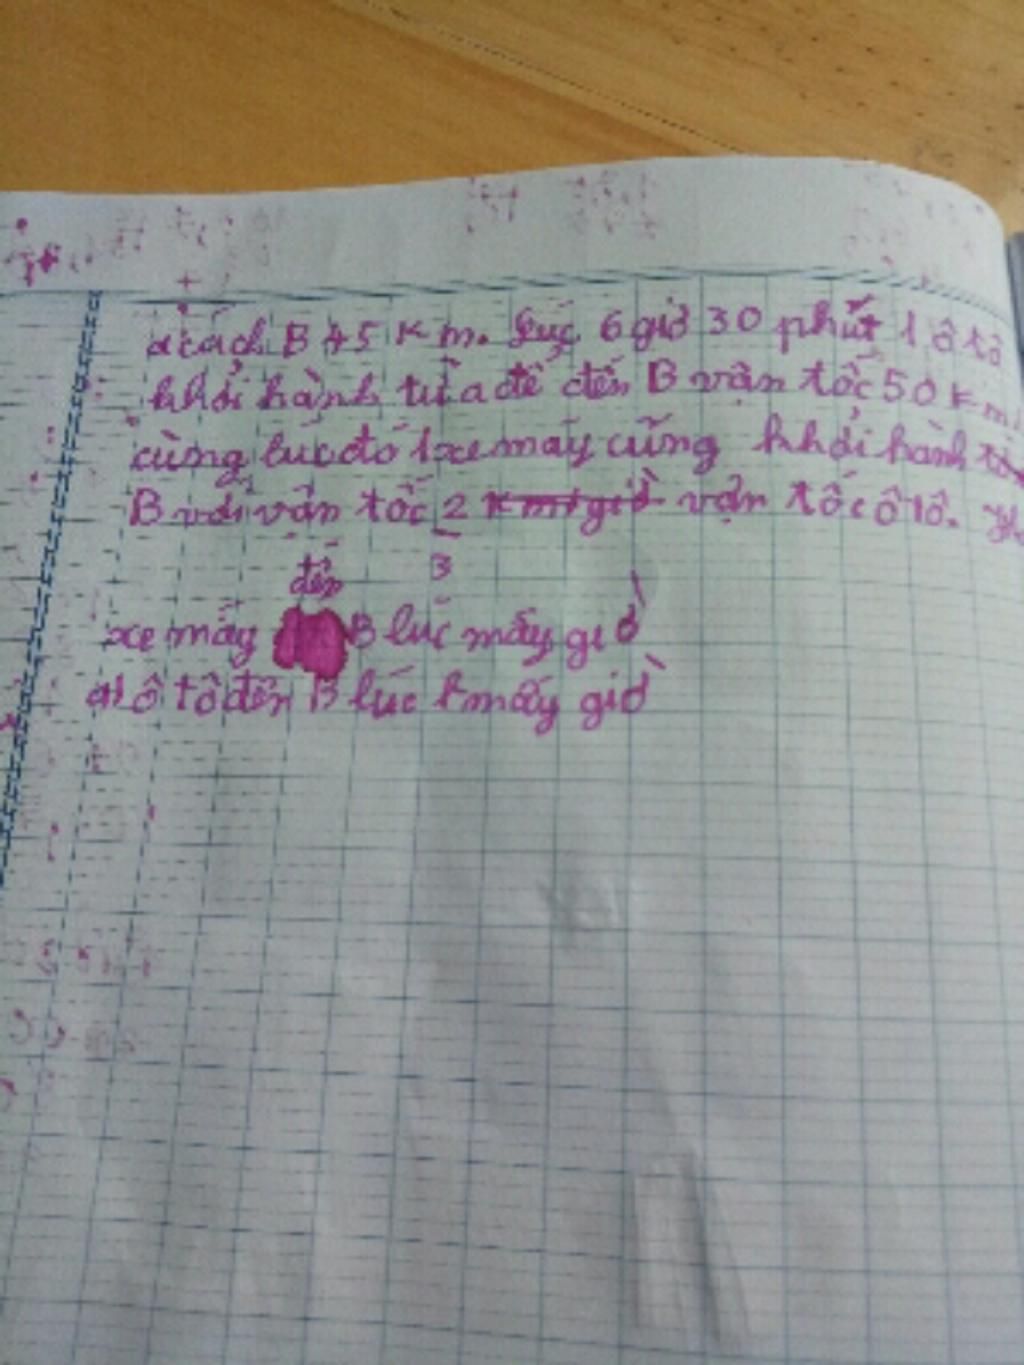 a cách B 45 km. Lúc 6 giờ 30 phút 1 ô tô
khởi hành từ a để đến B vận tốc 50 km/
cùng lúc đó 1 xe máy cũng khởi hành từ
B với vận tốc 2 km/giờ vận tốc ô tô.
đến 3
xe máy B lúc mấy giờ
a) ô tô đến B lúc mấy giờ